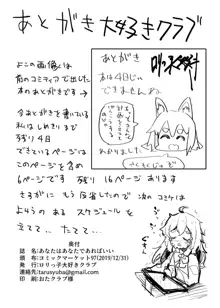 あとがき大好きクラブ
おこの画像は
前のコミティアで出した
本のあとがきです→
今あとがきを書いている
私はしめきりまで
残り4日
できているページは
このページを含め
6ページです 残り 16ページあります
さすがに もう反省したので 次のコミケは
よゆうのある スケジュールを
立てて… たてて…
あとがき
本は4日じゃ
できませんね
わかりました
奥付
誌名:あなたはあなたであればいい
頒布:コミックマーケット97(2019/12/31)
発行:ロリっ子大好きクラブ
連絡:tarusyuba@gmail.com
印刷:おたクラブ様